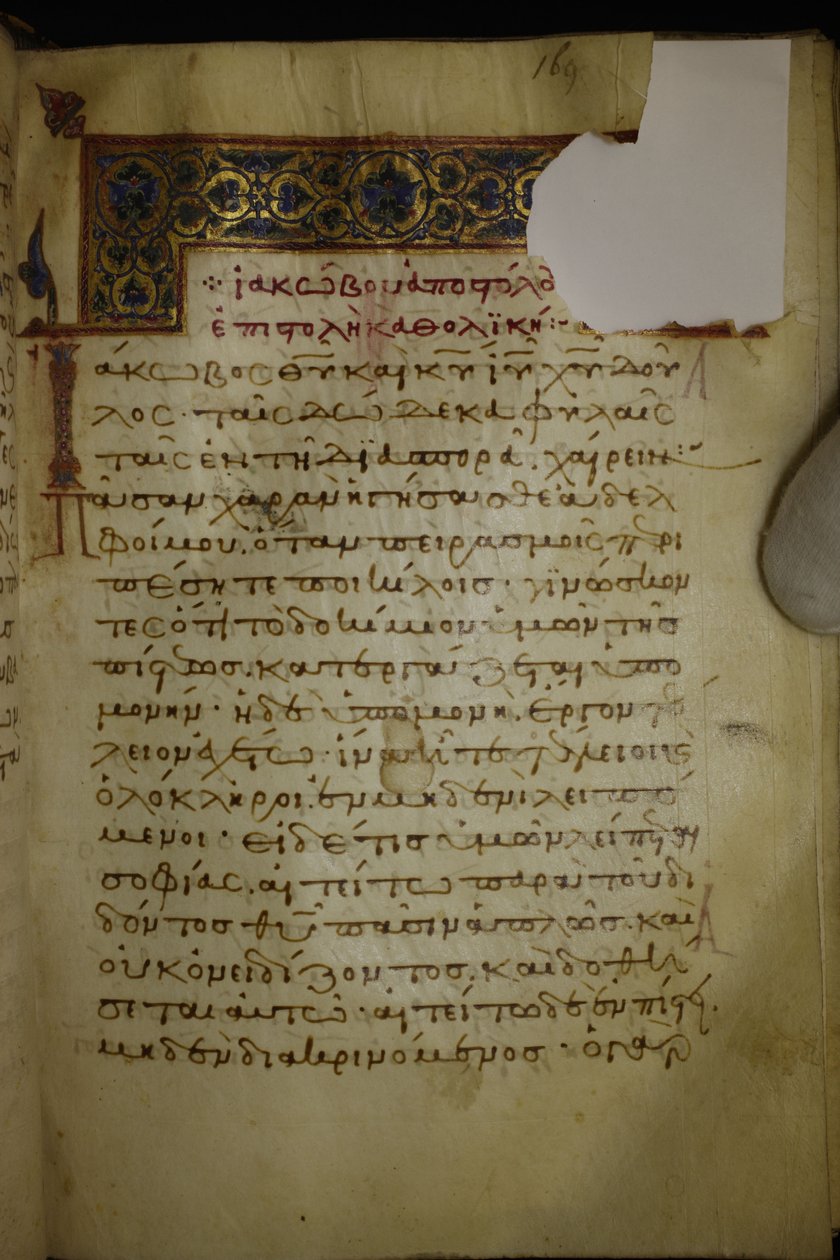 169
ἰακώβου ἀποστόλο
ἐπιστολὴ καθολϊκή:
Ἰάκωβος θ̅υ̅ καὶ κ̅υ̅ ἰ̅υ̅ χ̅υ̅ δοῦ
λος· ταῖς δώδεκα φυλαῖς
ταῖς ἐν τῆ διασπορᾶ. χαίρειν:
Πᾶσαν χαρὰν ἡγήσασθε ἀδελ
φοί μου. ὅταν πειρασμοῖς περι
πέσητε ποικίλοις· γινώσκον
τες ὅτι τὸ δοκίμιον ὑμῶν τῆς
πίστεως. κατεργάζεται ὑπο
μονήν· ἡ δὲ ὑπομονὴ. ἔργον τέ
λειον ἐχέτω· ἵνα ἦτε τέλειοι κὲ
ὁλόκληροι. ἐν μηδενὶ λειπό
μενοι· εἰ δέ τις ὑμῶν λείπεται
σοφίας. αἰτείτω παρὰ τοῦ δι
δόντος θ̅υ̅ πᾶσιν ἁπλῶς. καὶ
οὐκ ὀνειδίζοντος. καὶ δοθή
σεται αὐτῶ· αἰτείτω δὲ ἐν πίστει.
μηδὲν διακρινόμενος· ὁ γὰρ